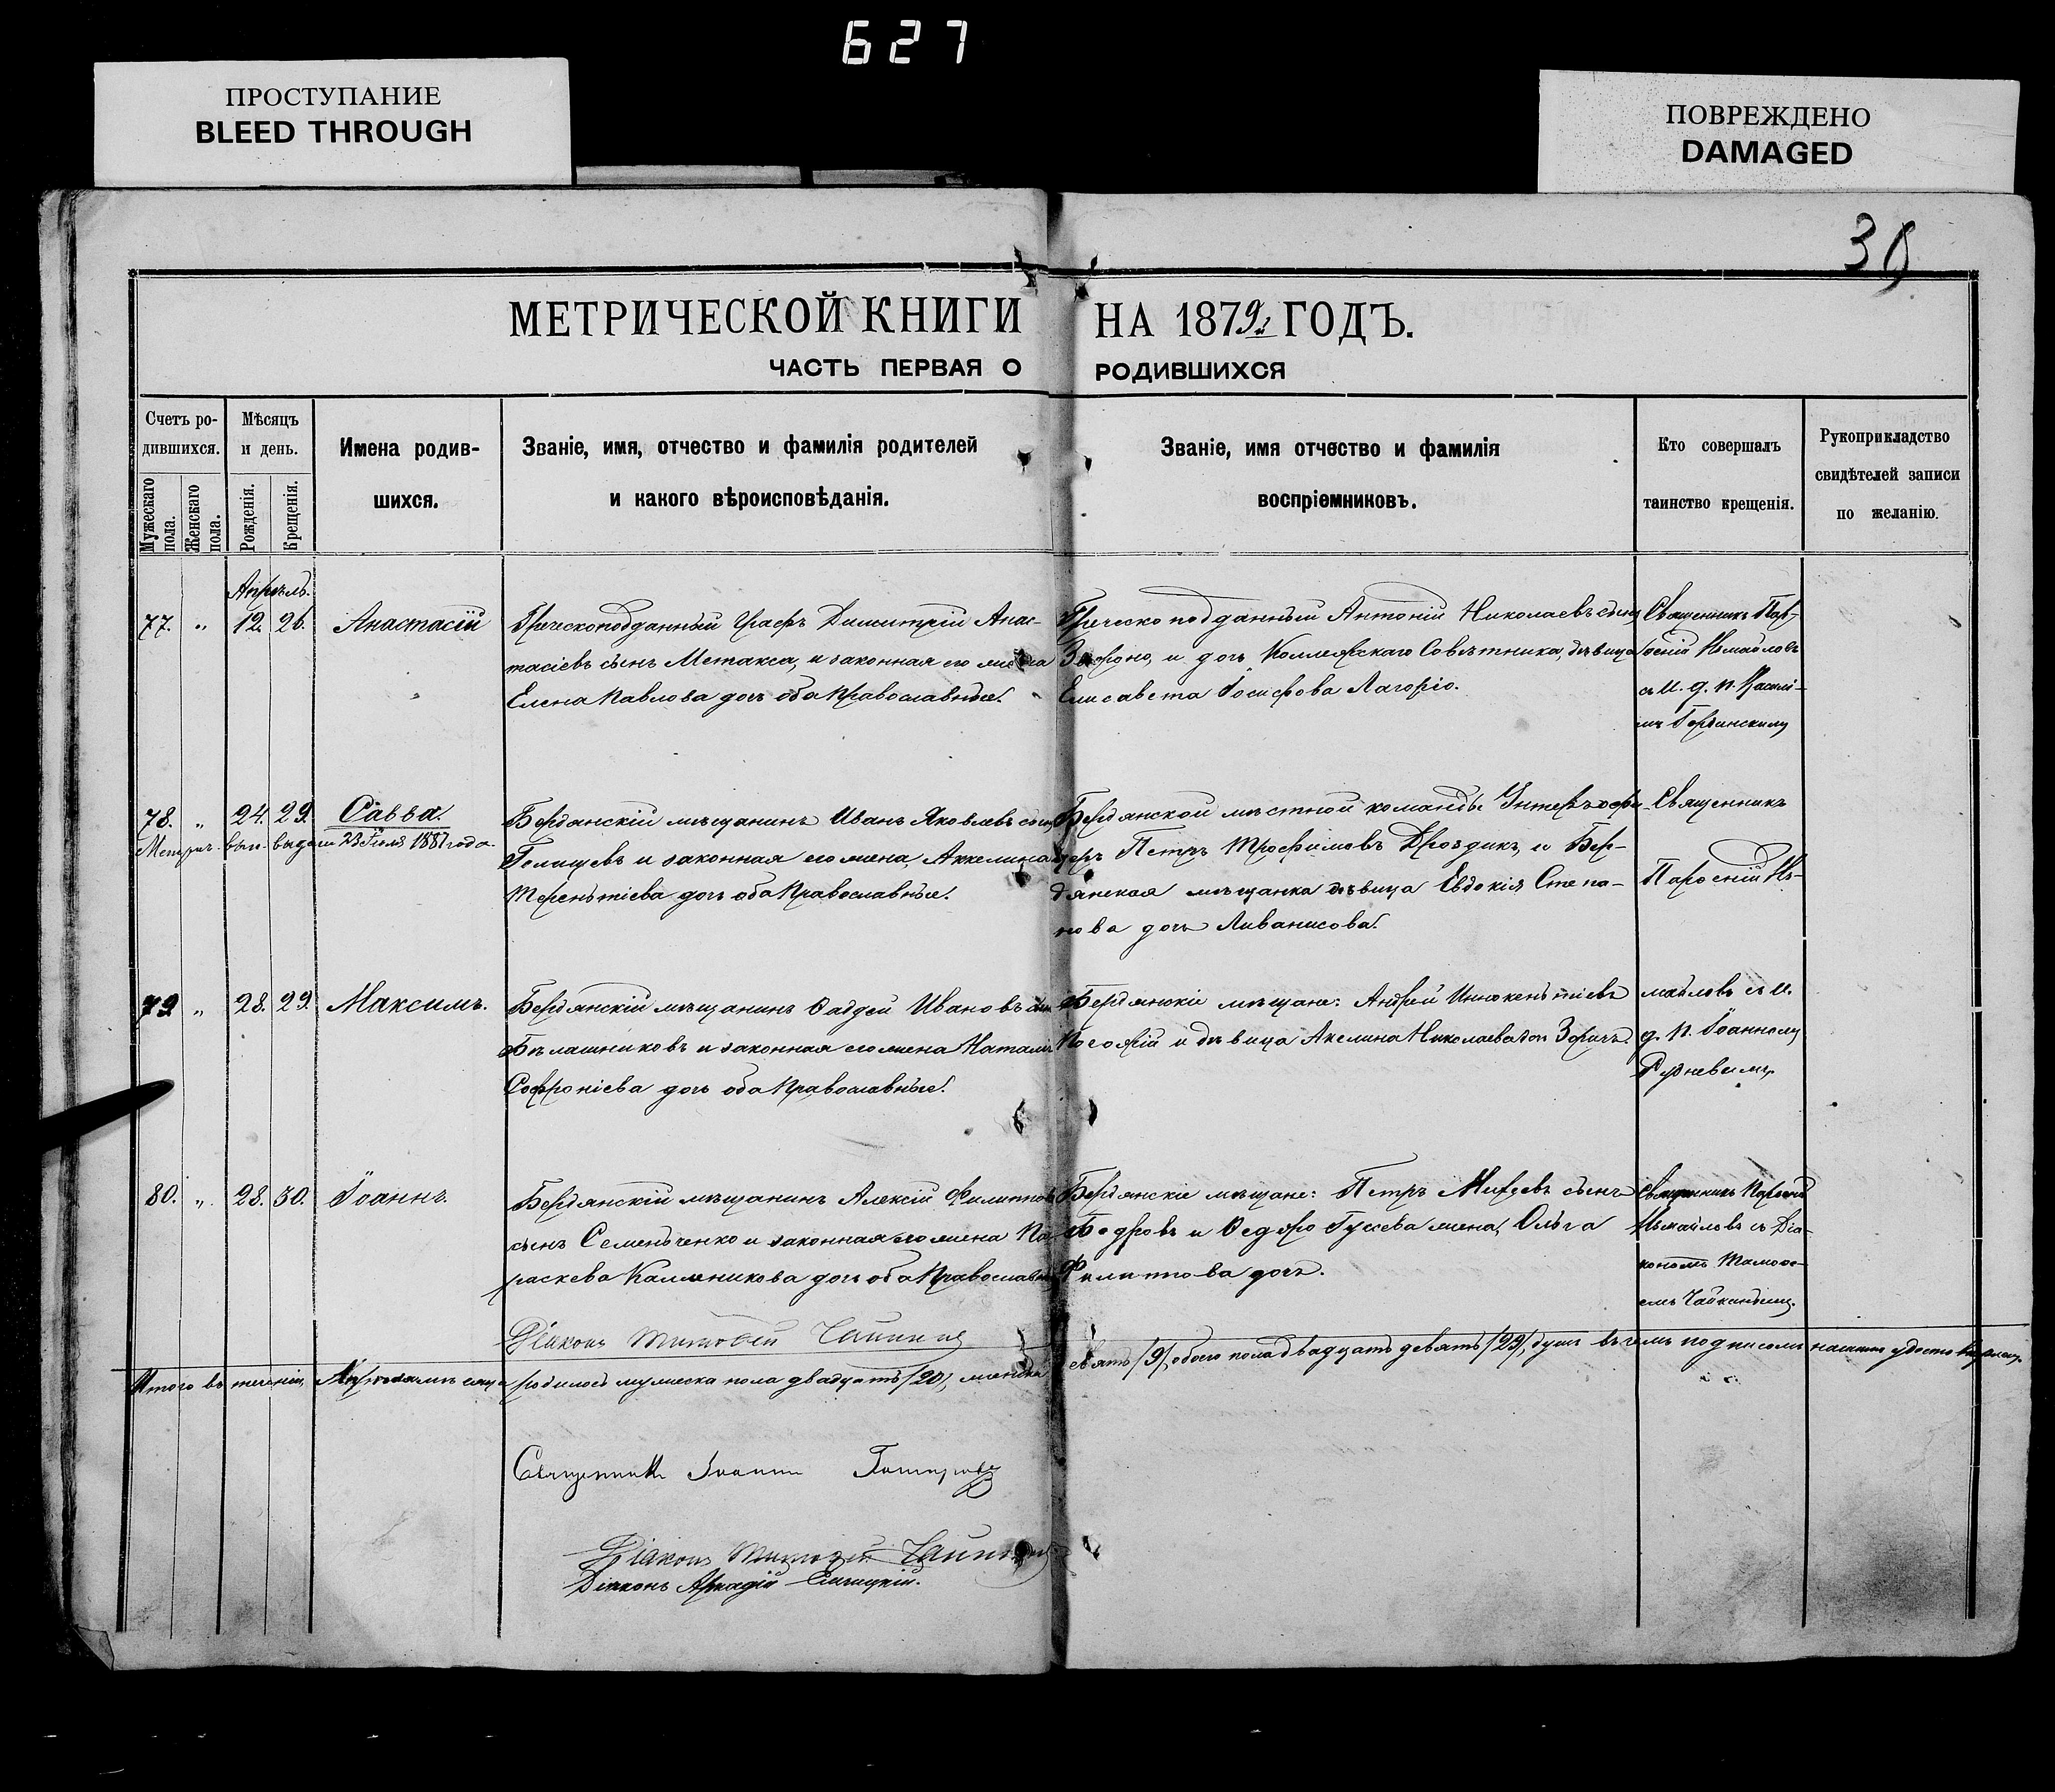 627
ПРОСТУПАНИЕ
BLEED THROUGH
ПОВРЕЖДЕНО
DAMAGED
30
МЕТРИЧЕСКОЙ КНИГИ НА 1879й ГОДЪ.
ЧАСТЬ ПЕРВАЯ О РОДИВШИХСЯ
Счетъ ро-
дившихся.
Мужескаго пола.
Женскаго пола.
Мѣсяцъ
и день.
Рожденія.
Крещенія.
Имена родив-
шихся.
Званіе, имя, отчество и фамилія родителей
и какого вѣроисповѣданія.
Званіе, имя отчество и фамилія
воспріемниковъ.
Кто совершалъ
таинство крещенія.
Рукоприкладство
свидѣтелей записи
по желанію.
Апрѣль.
77. " 12. 26. Анастасій
Греческоподданный Графъ Димитрій Анас-
тасіевъ сынъ Метакса, и законная его жена
Елена Павлова дочь оба Православные.
Греческоподданный Антоній Николаевъ сынъ
и дочь Коллежскаго Совѣтника, дѣвица
Елисавета Іосифова Лагоріо.
Священникъ Пар-
ѳеній Измайловъ
съ И. д. п.
78. " 24. 29. Савва.
Метрич. вып. выдана 23 Іюля 1887 года.
Бердянскій мѣщанинъ Иванъ Яковлевъ сынъ
и законная его жена, Аккелина
Терентіева дочь оба Православные.
Бердянской мѣстной команды Унтеръ-офи-
церъ Петръ Трофимовъ Дроздикъ, и Бер-
дянская мѣщанка дѣвица Евдокія Степа-
нова дочь Ливанисова.
Священникъ
Парѳеній Из-
79. " 28. 29. Максимъ.
Бердянскій мѣщанинъ Ѳаддей Ивановъ сынъ
Бѣлашниковъ и законная его жена Наталія
Софроніева дочь оба Православные.
Бердянскіе мѣщане: Андрей Иннокентіевъ
и дѣвица Акелина Николаева дочь Зоричъ.
майловъ съ И.
д. п. Іоанномъ
Рудневымъ.
80. " 28. 30. Іоаннъ.
Бердянскій мѣщанинъ Алексій Филиппов
сынъ Семенченко и законная его жена Па-
раскева Каллиникова дочь оба Православные
Бердянскіе мѣщане: Петръ Михеевъ сынъ
Бодровъ и Ѳедора Гусева жена, Ольга
Филиппова дочь.
Священникъ Парѳеній
Измайловъ съ Діа-
кономъ Тимоѳе-
емъ Чайкинымъ.
Діаконъ Тимоѳей Чайкинъ
Итого въ теченіи Апрѣля мѣсяца родилось мужеска пола двадцать /20/, женска девять /9/, обоего пола двадцать девять /29/, душъ въ чемъ подписомъ нашимъ удостовѣряемъ.
Священникъ Іоаннъ
Діаконъ Тимоѳей Чайкинъ
Діаконъ Аркадій